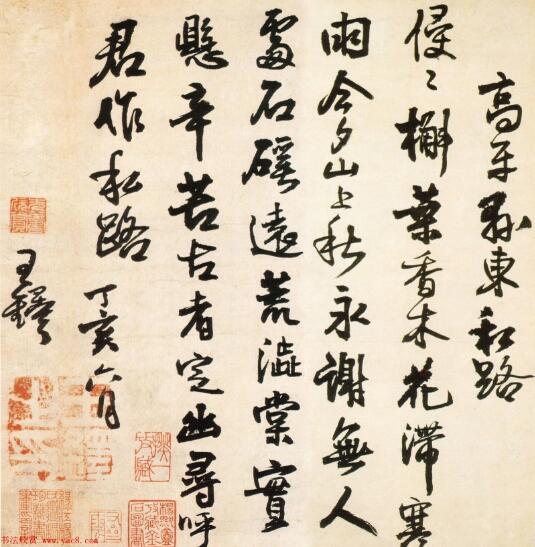 高平縣東私路
侵〻槲葉香木花滯寒
雨今夕山上秋永謝無人
處石磎遠荒澁棠實
懸辛苦古者定幽尋呼
君作私路
丁亥六月
王鐸
王鐸之印
书法欣赏 www.yac8.com